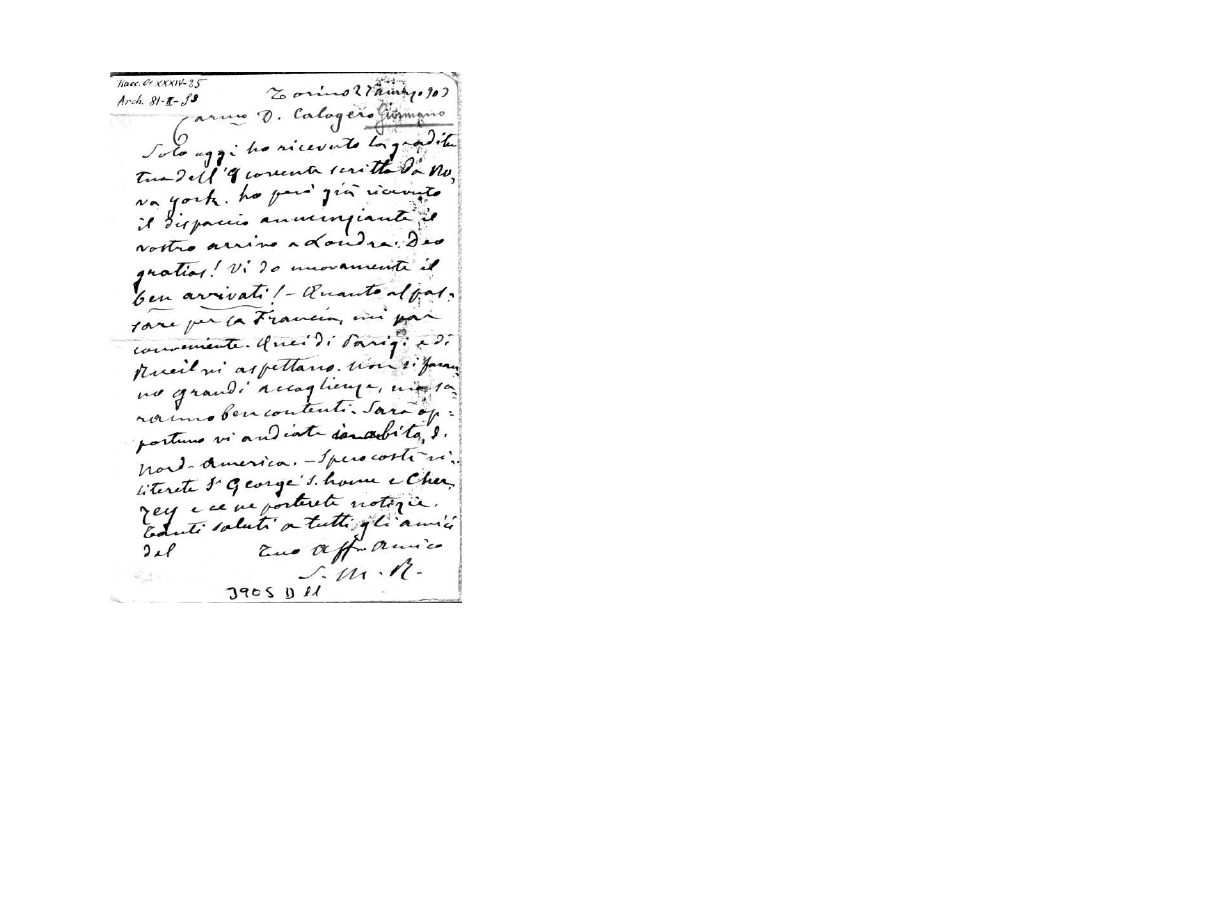 Racc. Or XXXIV-25
Arch. 81-II-
Torino 27 marzo 903
Carmo D. Calogero Gusmano
Solo oggi ho ricevuto la gradita
tua dell'9 corrente scritta da No,
va york. ho però già ricevuto
il dispaccio annunziante il
vostro arrivo a Londra. Deo
gratias! Vi do nuovamente il
ben arrivati! - Quanto al pas-
sare per la Francia, mi par
conveniente. Quei di Parigi e di
Rueil vi aspettano. non si faran
no grandi accoglienze, ma sa-
ranno ben contenti. Sarà op=
portuno vi andiate in abito, d.
Nord-America. - Spero costì vi-
siterete St George's. home e Cher,
zey e ce ne porterete notizie.
Tanti saluti a tutti gli amici
dal Tuo Affmo Amico
S. M. R.
3905 D 11